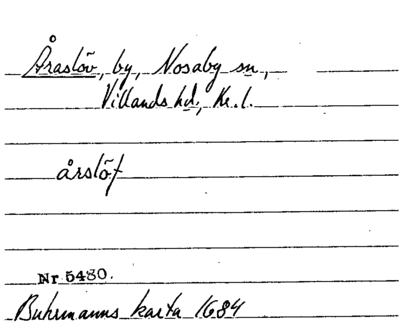 Åraslöv, by, Nosaby sn,
Villands hd, Kr. l.
årslöf
Nr 5480.
Buhrmanns karta 1684